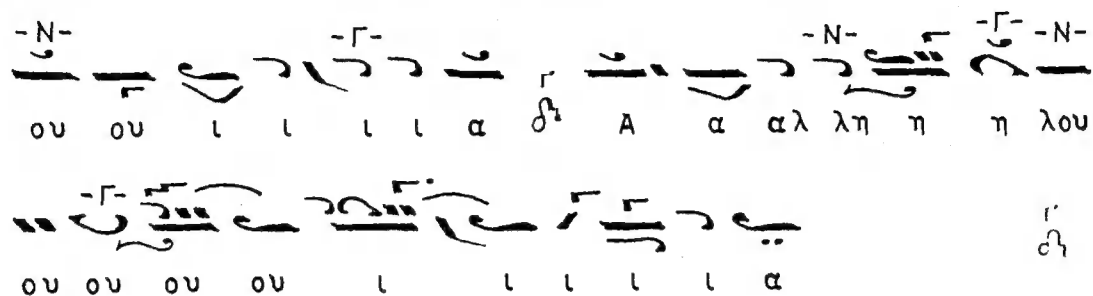 -Ν- -Γ- -Ν- -Γ- -Ν-
ου ου ι ι ι ι α Α α αλ λη η η λου
-Γ-
ου ου ου ου ι ι ι ι ι α